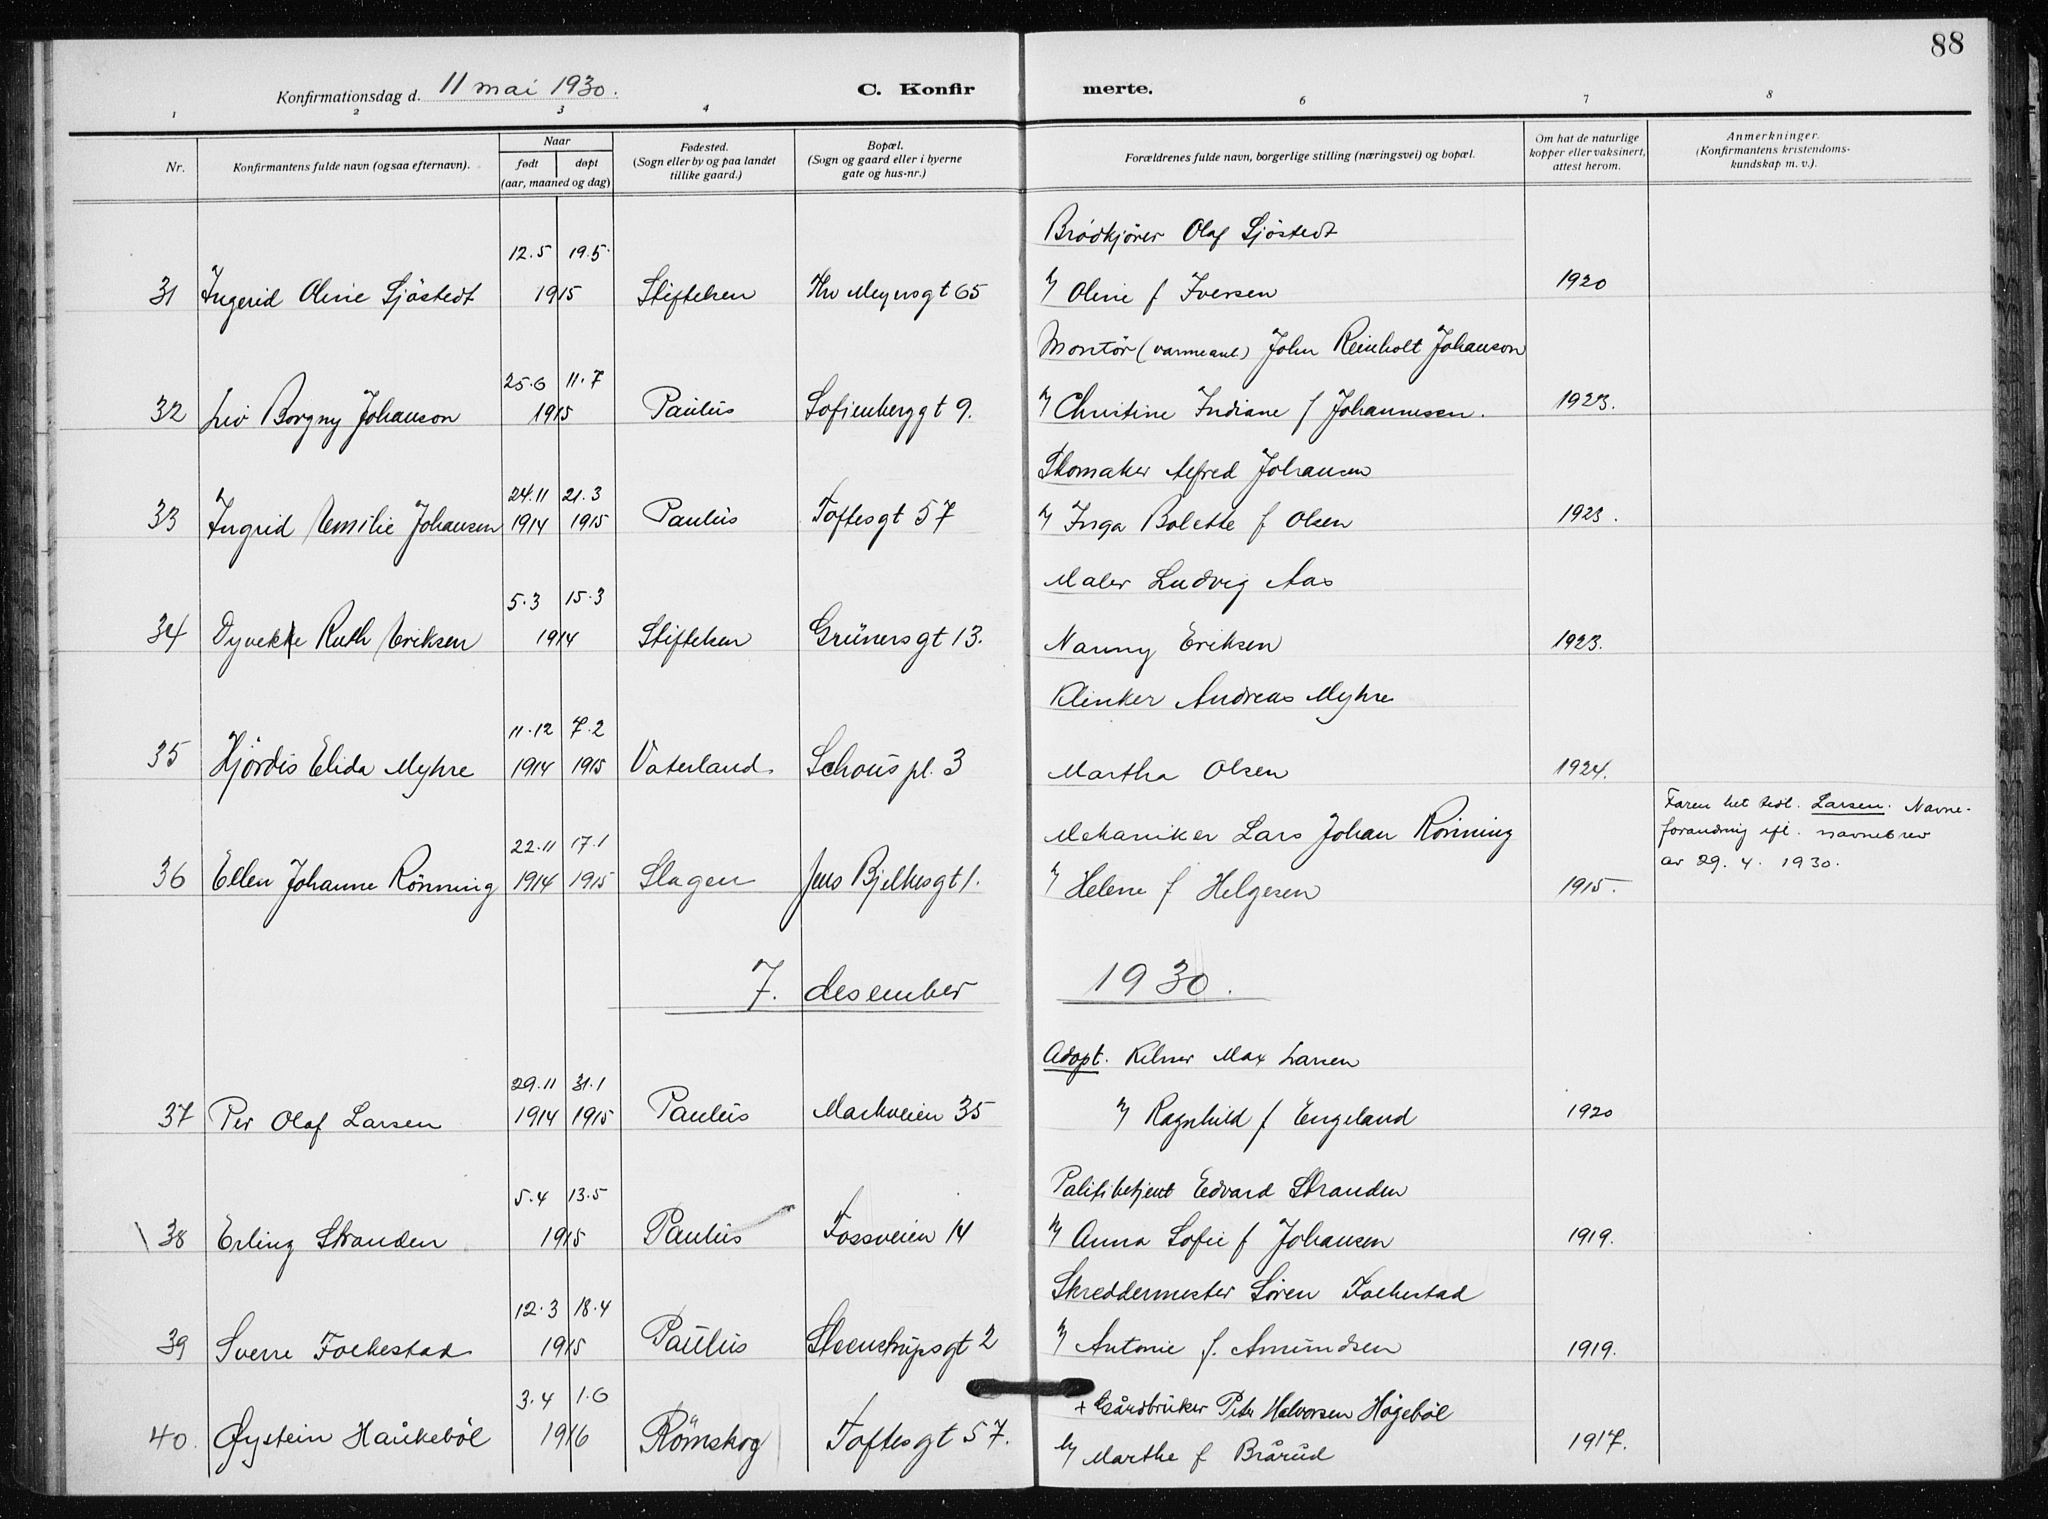 88
Konfirmationsdag d. 11 mai 1930. C. Konfirmerte.
1 2 3 4 6 7 8
Nr. Konfirmantens fulde navn (ogsaa efternavn). Naar født døpt (aar, maaned og dag) Fødested. (Sogn eller by og paa landet tillike gaard.) Bopæl. (Sogn og gaard eller i byerne gate og hus-nr.) Forældrenes fulde navn, borgerlige stilling (næringsvei) og bopæl. Om hat de naturlige kopper eller vaksinert, attest herom. Anmerkninger. (Konfirmantens kristendomskundskap m. v.).
Brödkjörer Olaf Sjöstedt
12.5 19.5
31 Ingerid Oline Sjöstedt 1915 Stiftelsen Thv Meyersgt 65 Oline f Iversen 1920
Montör (varmeanl.) John Reinholt Johanson
25.6 11.7
32 Liv Borgny Johanson 1915 Paulus Sofienberggt 9. Christine Indiane f Johannesen. 1923.
Skomaker Alfred Johansen
24.11 21.3
33 Ingrid Emilie Johansen 1914 1915 Paulus Toftesgt 57 Inga Bolette f Olsen 1923.
Maler Ludvig Aas
5.3 15.3
34 Dyvekke Ruth Eriksen 1914 Stiftelsen Grünersgt 13. Nanny Eriksen 1923.
Klinker Andreas Myhre
11.12 7.2
35 Hjördis Elida Myhre 1914 1915 Vaterland Schous pl. 3 Martha Olsen 1924.
Mekaniker Lars Johan Rönning Faren het tidl. Larsen. Navne-
22.11 17.1 forandring ifl. navnebrev
36 Ellen Johanne Rönning 1914 1915 Slagen Jens Bjelkesgt 1. Helene f Helgesen 1915. av 29. 4. 1930.
7. desember 1930.
Adopt. Kelner Max Larsen
29.11 31.1
37 Per Olaf Larsen 1914 1915 Paulus Markveien 35 Ragnhild f Engeland 1920
Politibetjent Edvard Stranden
5.4 13.5
38 Erling Stranden 1915 Paulus Fossveien 14 Anna Sofie f Johansen 1919.
Skreddermester Sören Folkestad
12.3 18.4
39 Sverre Folkestad 1915 Paulus Steenstrupsgt 2 Antonie f. Amundsen 1919.
3.4 1.6 + Gårdbruker Peter Halvorsen Högeböl
40. Øystein Haukeböl 1916 Römskog Toftesgt 57. Marthe f Brårud 1917.